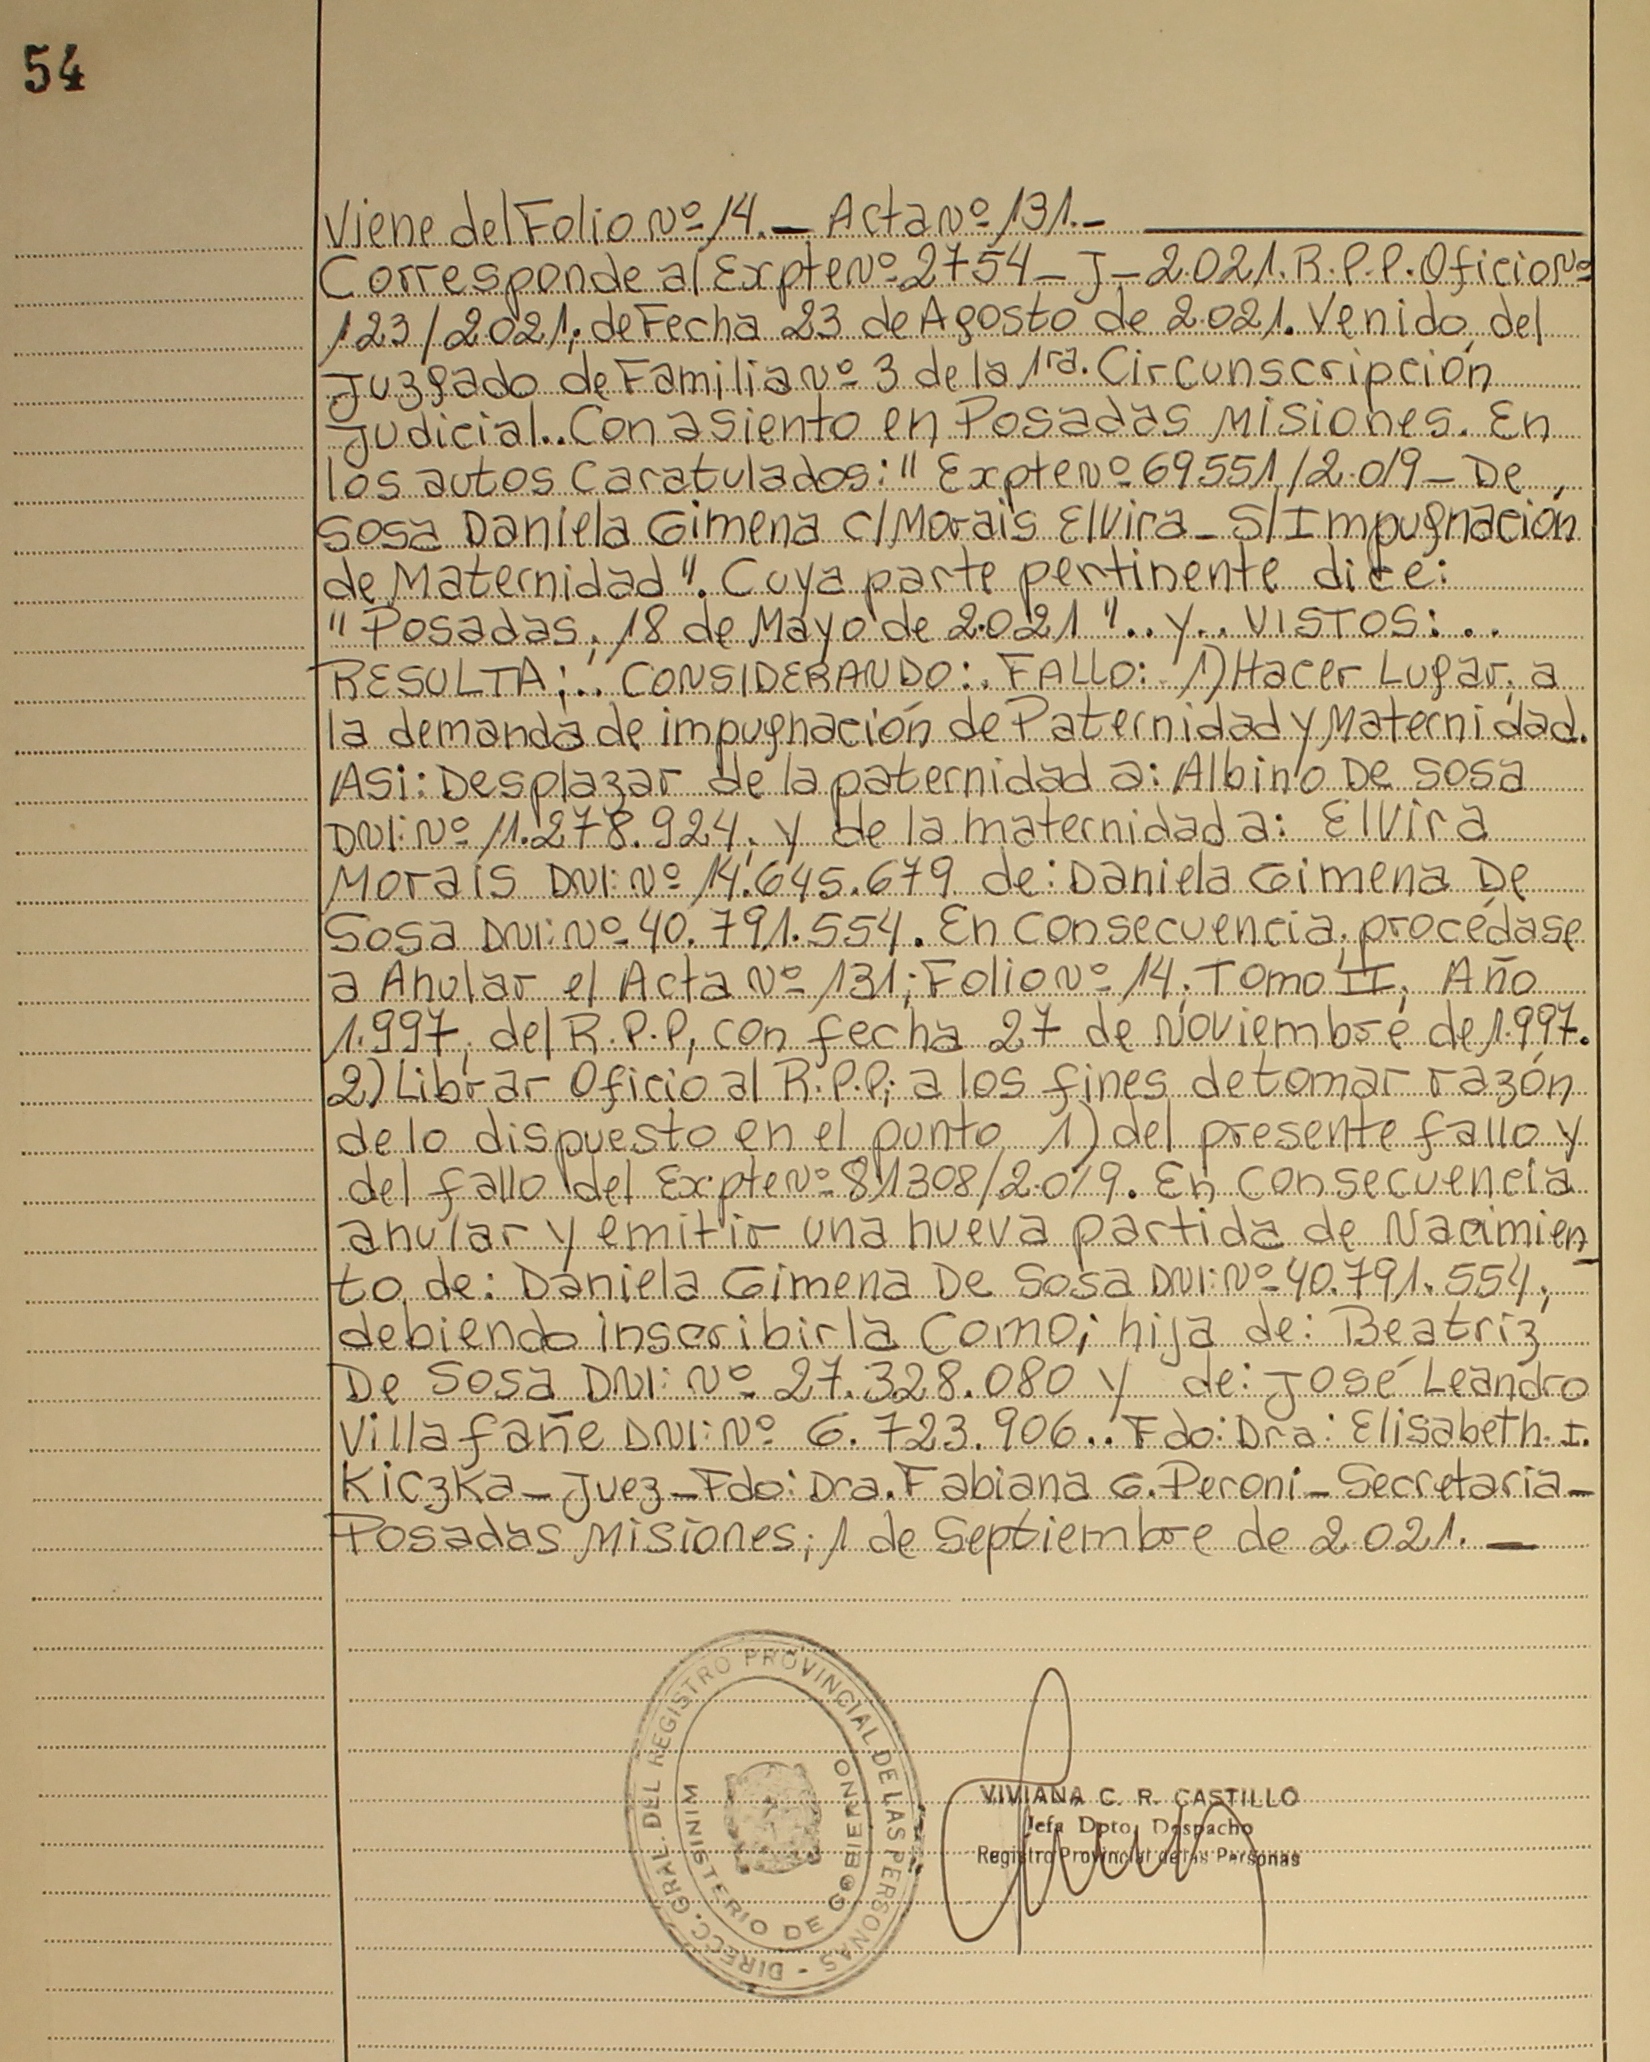 54
Viene del Folio Nº 14.- Acta Nº 131.-
Corresponde al Expte Nº 2754-J-2.021. R.P.P. Oficio Nº
123/2.021; de Fecha 23 de Agosto de 2.021. Venido del
Juzgado de Familia Nº 3 de la 1ra. Circunscripción
Judicial.. Con asiento en Posadas Misiones. En
los autos Caratulados: " Expte Nº 69551/2.019 - De
Sosa Daniela Gimena c/Morais Elvira - S/Impugnación
de Maternidad". Cuya parte pertinente dice:
" Posadas, 18 de Mayo de 2.021 ".. y.. VISTOS: ..
RESULTA;.. CONSIDERANDO:. FALLO: 1) Hacer Lugar, a
la demanda de impugnación de Paternidad y Maternidad.
Asi: Desplazar de la paternidad a: Albino De Sosa
DNI: Nº 11.278.924. y de la maternidad a: Elvira
Morais DNI: Nº 14.645.679 de: Daniela Gimena De
Sosa DNI: Nº 40.791.554. En Consecuencia, procédase
a Anular el Acta Nº 131; Folio Nº 14, Tomo II, Año
1.997, del R.P.P, con fecha 27 de Noviembre de 1.997.
2) Librar Oficio al R.P.P; a los fines de tomar razón
de lo dispuesto en el punto 1) del presente fallo y
del fallo del Expte Nº 81308/2.019. En Consecuencia
anular y emitir una nueva partida de Nacimien
to de: Daniela Gimena De Sosa DNI: Nº 40.791.554,
debiendo inscribirla Como; hija de: Beatriz
De Sosa DNI: Nº 27.328.080 y de: José Leandro
Villafañe DNI: Nº 6.723.906.. Fdo: Dra: Elisabeth. I.
Kiczka - Juez - Fdo: Dra. Fabiana G. Peroni - Secretaria -
Posadas Misiones; 1 de Septiembre de 2.021. -
DIRECC. GRAL. DEL REGISTRO PROVINCIAL DE LAS PERSONAS -
MINISTERIO DE GOBIERNO
VIVIANA C. R. CASTILLO
Jefa Dpto. Despacho
Registro Provincial de las Personas